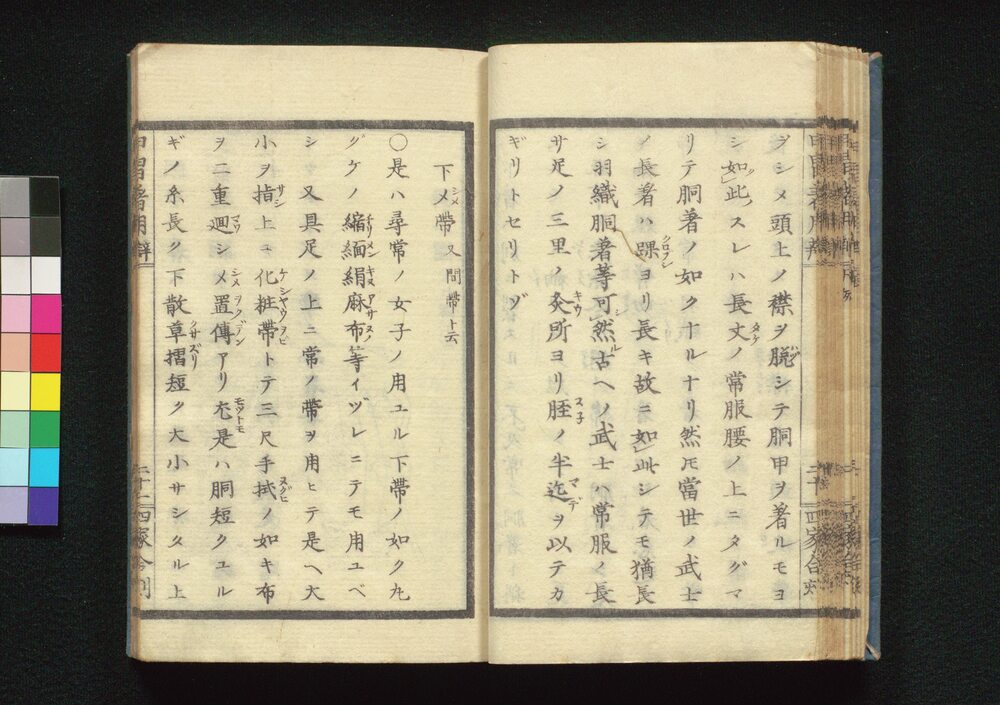 ヲシメ頭上ノ襟ヲ脱シテ胴甲ヲ著ルモヨ
シ如此スレハ長丈ノ常服腰ノ上ニタグマ
リテ胴著ノ如クナルナリ然𪜈當世ノ武士
ノ長著ハ踝ヨリ長キ故ニ如此シテモ猶長
シ羽織胴著等可然古ヘノ武士ハ常服ノ長
サ足ノ三里ノ灸所ヨリ脛ノ半迄ヲ以テカ
ギリトセリトゾ
下メ帶又問帶ト云
〇是ハ尋常ノ女子ノ用ユル下帶ノ如ク丸
グケノ縮緬絹麻布等イヅレニテモ用ユベ
シ又具足ノ上ニ常ノ帶ヲ用ヒテ是ヘ大
小ヲ指上ニ化粧帶トテ三尺手拭ノ如キ布
ヲ二重廻シメ置傳アリ尤是ハ胴短クユル
ギノ糸長ク下散草摺短ク大小サシタル上
甲冑著用辯
二十一
四家合刻